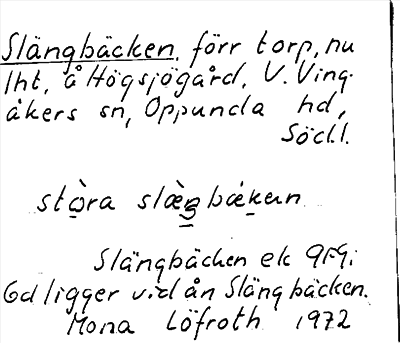 Slängbäcken, förr torp, nu
lht, å Högsjögård, V. Ving-
åkers sn, Oppunda hd,
Södl.
stò̱ra slæ̀ŋbækan
Slängbäcken ek
Gd ligger vid ån Slängbäcken.
Mona Löfroth 1972